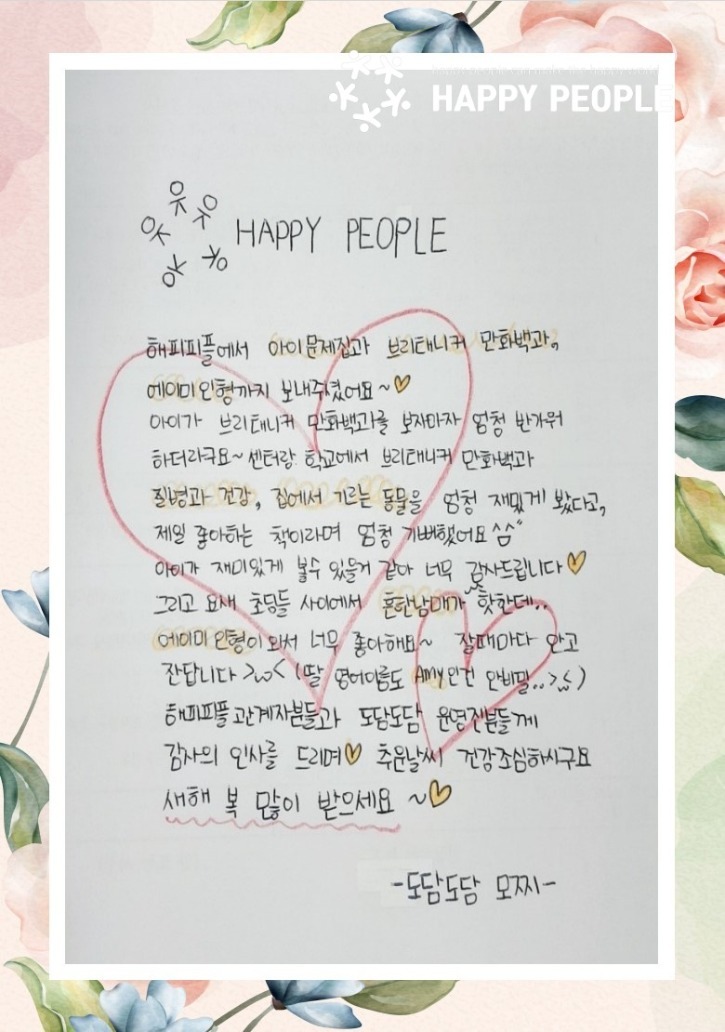 HAPPY PEOPLE
HAPPY PEOPLE
해피피플에서 아이문제집과 브리태니커 만화백과,
에이미인형까지 보내주셨어요~♡
아이가 브리태니커 만화백과를 보자마자 엄청 반가워
하더라구요~ 센터랑 학교에서 브리태니커 만화백과
질병과 건강, 집에서 기르는 동물을 엄청 재밌게 봤다고,
제일 좋아하는 책이라며 엄청 기뻐했어요^^"
아이가 재미있게 볼수 있을거 같아 너무 감사드립니다♡
그리고 요새 초딩들 사이에서 흔한남매가 핫한데..
에이미 인형이 와서 너무 좋아해요~ 잘때마다 안고
잔답니다 >ω< (딸 영어이름도 Amy인건 안비밀..>ω<)
해피피플관계자분들과 도담도담 운영진분들께
감사의 인사를 드리며♡ 추운날씨 건강조심하시구요
새해 복 많이 받으세요 ~♡
-도담도담 모찌-